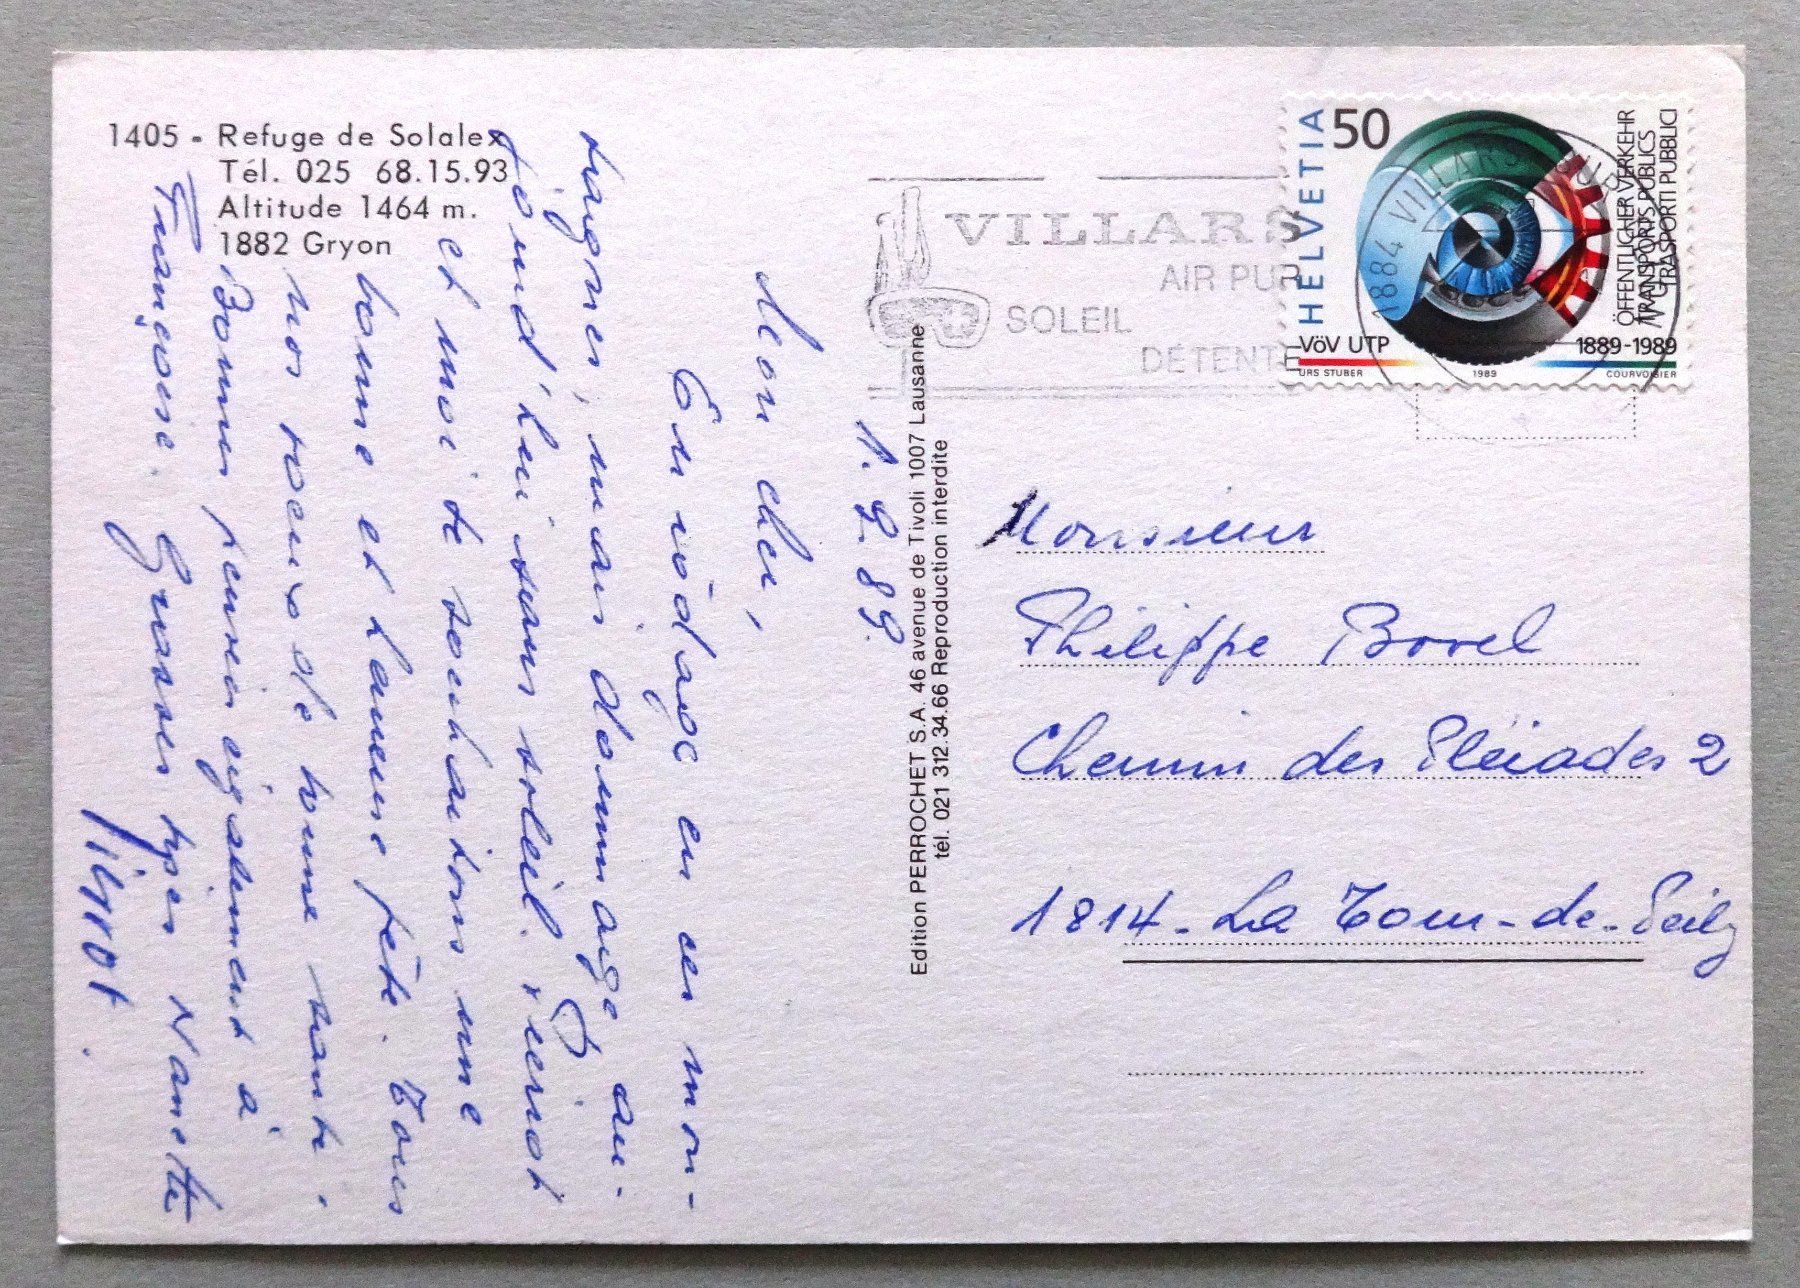 1405 - Refuge de Solalex
Tél. 025 68.15.93
Altitude 1464 m.
1882 Gryon
1. 2. 89.
Mon cher,
En vidage en ces mon-
tagnes, mais dommage au-
jourd'hui sans soleil. Pierrot
et moi te souhaitons une
bonne et heureuse fête. Tous
nos voeux de bonne santé.
Bonnes pensées également à
Françoise. Grosses bises Nanette
Pierrot.
Edition PERROCHET S.A. 46 avenue de Tivoli 1007 Lausanne
tél. 021 312.34.66 Reproduction interdite
VILLARS
AIR PUR
SOLEIL
DÉTENTE
1884 VILLARS
HELVETIA 50
ÖFFENTLICHER VERKEHR
TRANSPORTS PUBLICS
TRASPORTI PUBBLICI
VöV UTP 1889-1989
URS STUBER 1989 COURVOISIER
Monsieur
Philippe Bovel
Chemin des Pléiades 2
1814 - La Tour-de-Peilz